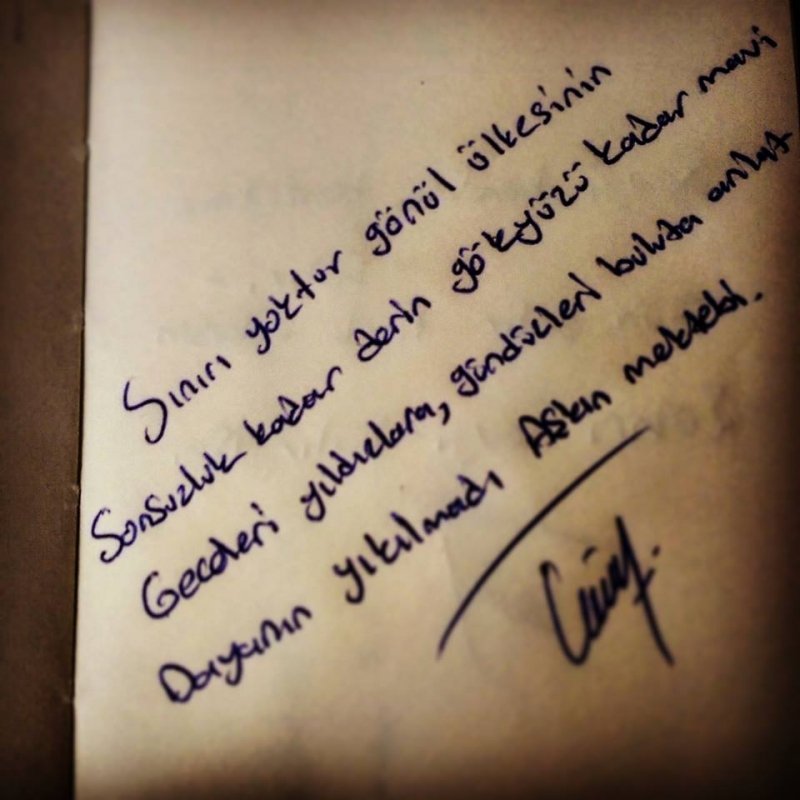 Sınırı yoktur gönül ülkesinin
Sonsuzluk kadar derin gökyüzü kadar mavi
Geceleri yıldızlara, gündüzleri buluta anlat
Dayanın yıkılmadı Aşkın mektebi.